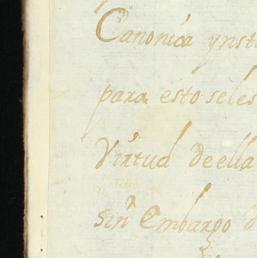 Canonica ynst
para esto seles
Virtud de ella
sin Embargo d